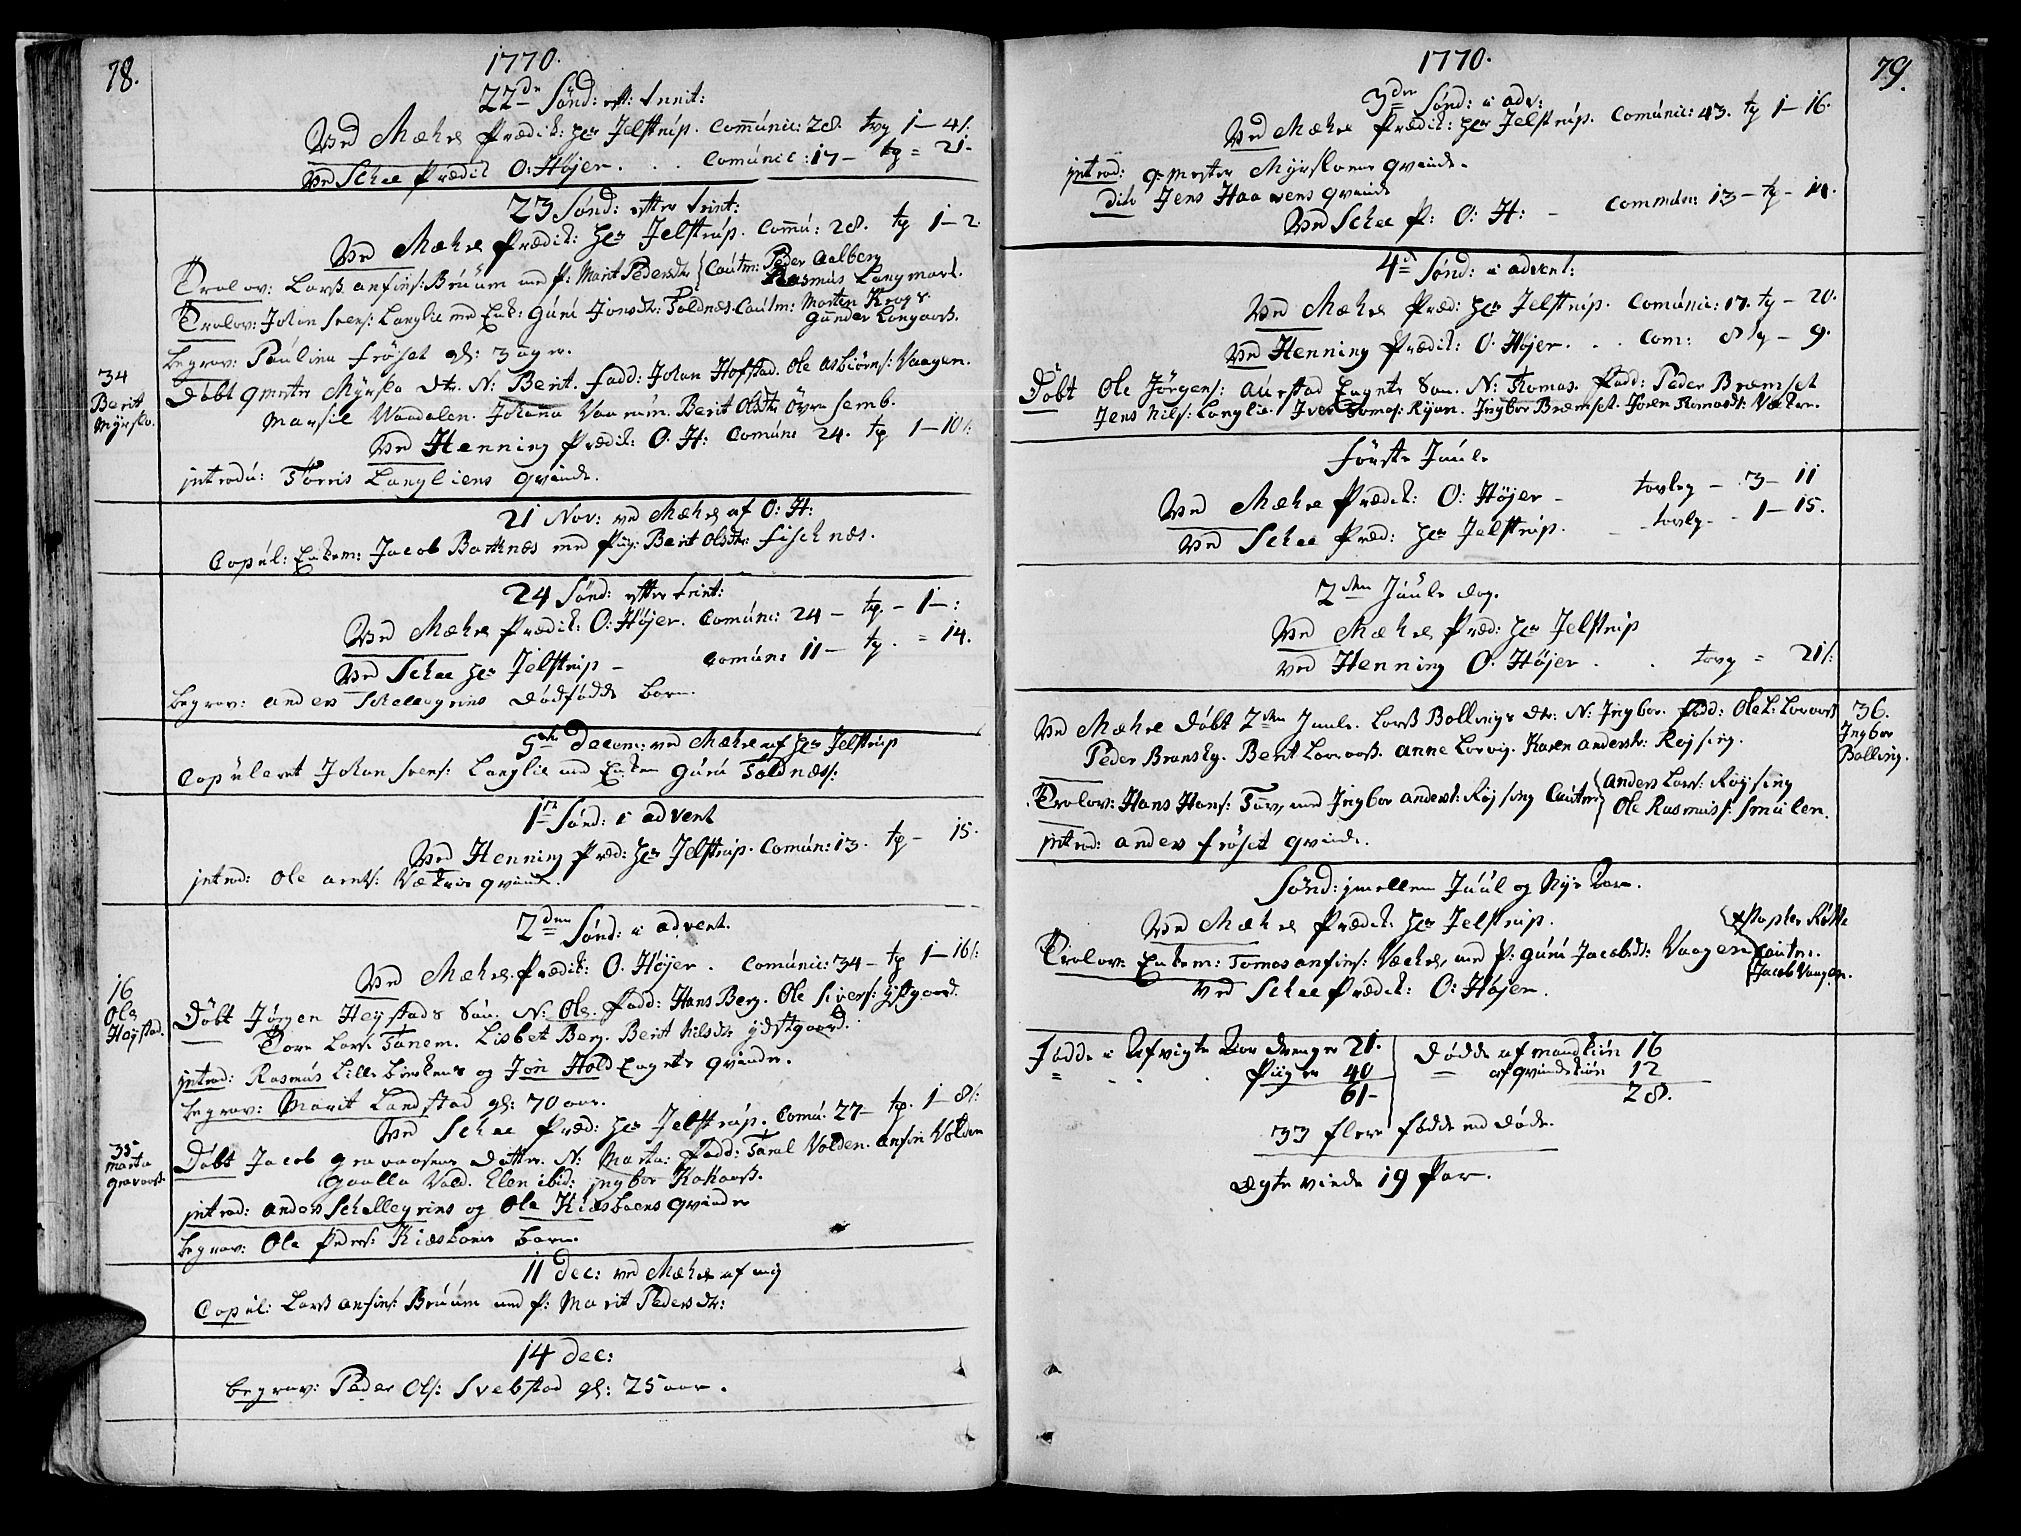 78.
1770.
22de Sönd: eft: Trinit:
Ved Mæhre Prædik: Hr Jelstrup. Com̄unic: 28. tvg 1-4/:
Ved Schee Prædik O: Höjer. . . Comúnic: 17- tg = 21-
23 Sönd: efter Trinit:
Ved Mæhre Prædik: Hr Jelstrúp. Com̄ú: 28. tg 1-2
Trolov: Larß Anfins: Brúúm med P: Marit Pedersdtr {Cautm: Peder Aalberg
Rasmús Langmarch.
Trolov: Johan Svens: Langlie med Enk: Gúrú Jonsdtr: Foldnes. Cautm: Morten Krogs
Gunder Langaas.
begrav: Paulina Fröset gl: 3 Uger.
34
Berit
Myrslo.
Döbt Mester Myrslo Dtr. N: Berit. Fadd: Johan Hofstad. Ole Asbiörns: Vaagen.
Marsil Wandalen. Johana Vaarúm. Berit Olsdtr Övre Semb.
Ved Henning Prædik: O: H: Común: 24. tg 1-10/:
introdú: Torris Langliens Qvinde.
21 Nov: ved Mæhre af O: H:
Copúl: Enkem: Jacob Bartnæs med Pig: Berit Olsdtr: Fisknæs.
24 Sönd: efter Trint:
Ved Mæhre Prædik: O: Höjer. Comúni: 24 - tg. - 1-:
Ved Schee Hr Jelstrup - Común: 11- tg. = 14.
begrav: Anders Schelegrins dödfödde barn.
5te Decem: ved Mæhre af Hr Jelstrup
Copúleret Johan Svens: Langlie med Enken Gúrú Foldnæs:
1te Sönd: i Advent
Ved Henning Præd: Hr Jelstrup. Común: 13. tg - 15.
introd: Ole Arnts: Vækres qvinde.
2den Sönd: i Advent.
Ved Mæhre Prædik: O. Höjer. Comúnic: 34 - tg 1-16/:
16
Ole
Heystad.
Döbt Jörgen Heystads Sön. N: Ole. Fadd: Hans Berg. Ole Sivers: Ystgaard.
Tore Lars: Tanem. Lisbet Berg. Berit Nilsdtr Ydstgaard.
introd: Rasmús Lille birkens og Jon Hold Enget qvinder.
begrav: Marit Landstad gl: 70 aar.
Ved Schee Præd: Hr Jelstrúp. Comú: 27- tg. 1-8/:
35
Marta
Gravaas.
Döbt Jacob Gravaasens Datter. N: Marta: Fadd: Taral Volden. Anfin Volden
Guulla Vold. Elen ibid: Ingbor Kahaarß.
introd: Anders Schellegrins og Ole Kiæsboens qvinder
begrav: Ole Peders: Kiæsboens barn.
11 Dec: ved Mæhre af mig
Copúl: Larß Anfins: Brúúm med P: Marit Pedersdtr:
14 Dec:
begrav: Peder Ols: Svebstad gl: 25 aar.
79.
1770.
3die Sönd: i Adv:
Ved Mæhre Prædik: Hr Jelstrúp. Comúnic: 43. tg 1-16.
introd: Mester Myrsloens qvinde.
dito Jens Haavens qvinde
Ved Schee P: O: H: - Commún: 13- tg- 11.
4de Sönd: i Advent:
Ved Mæhre Præd: Hr Jelstrup. Comúnic: 17. tg - 20.
Ved Henning Prædik: O: Höjer. . . Com: 8 tg - 9.
Döbt Ole Jörgens: Aurstad Engets Sön. N: Thomas. Fadd: Peder Bræmset
Jens Nils: Langlie. Iver Tomas: Ryan. Ingbor Bræmset. Joren Tomasdt: Vækre.
förste Júúle
Ved Mæhre Prædik: O: Höjer - tavleg - 3-11
Ved Schee Præd: Hr Jelstrúp. - tavlg - 1-15.
2den Júúle dag.
Ved Mæhre Præd: Hr Jelstrúp
Ved Henning O. Höjer . . tavg = 21/:
Ved Mæhre döbt 2den Juule. Larß Bollings Dtr: N: Ingbor. Fadd: Ole L: Loraas
Peder Bransteg. Berit Loraas. Anne Lorvig. Karen Andersdtr: Røjsing.
36.
Ingbor
Bolling.
Trolov: Hans Hans: Tûv, med Ingbor Andersdt: Røjsing Cautm {Anders Lars: Røysing
Ole Rasmús: Smúlen.
introd: Anders Fröset qvinde.
Sönd: imellem Júúl og Nye Aar.
Ved Mæhre Prædik Hr Jelstrúp.
Trolov: Enkem: Tomas Anfins: Vækre, med P: Gúrú Jacobsdt: Vaagen Cautm.
Jacob Vaagen.
Ved Schee Prædik: O: Höjer.
Födde i Afvigte Aar drenger 21.
Piiger 40
61-
Dödde af mandkiön 16
af qvindekiön 12
28.
33 flere födde end döde.
Ægte viede 19 Par.